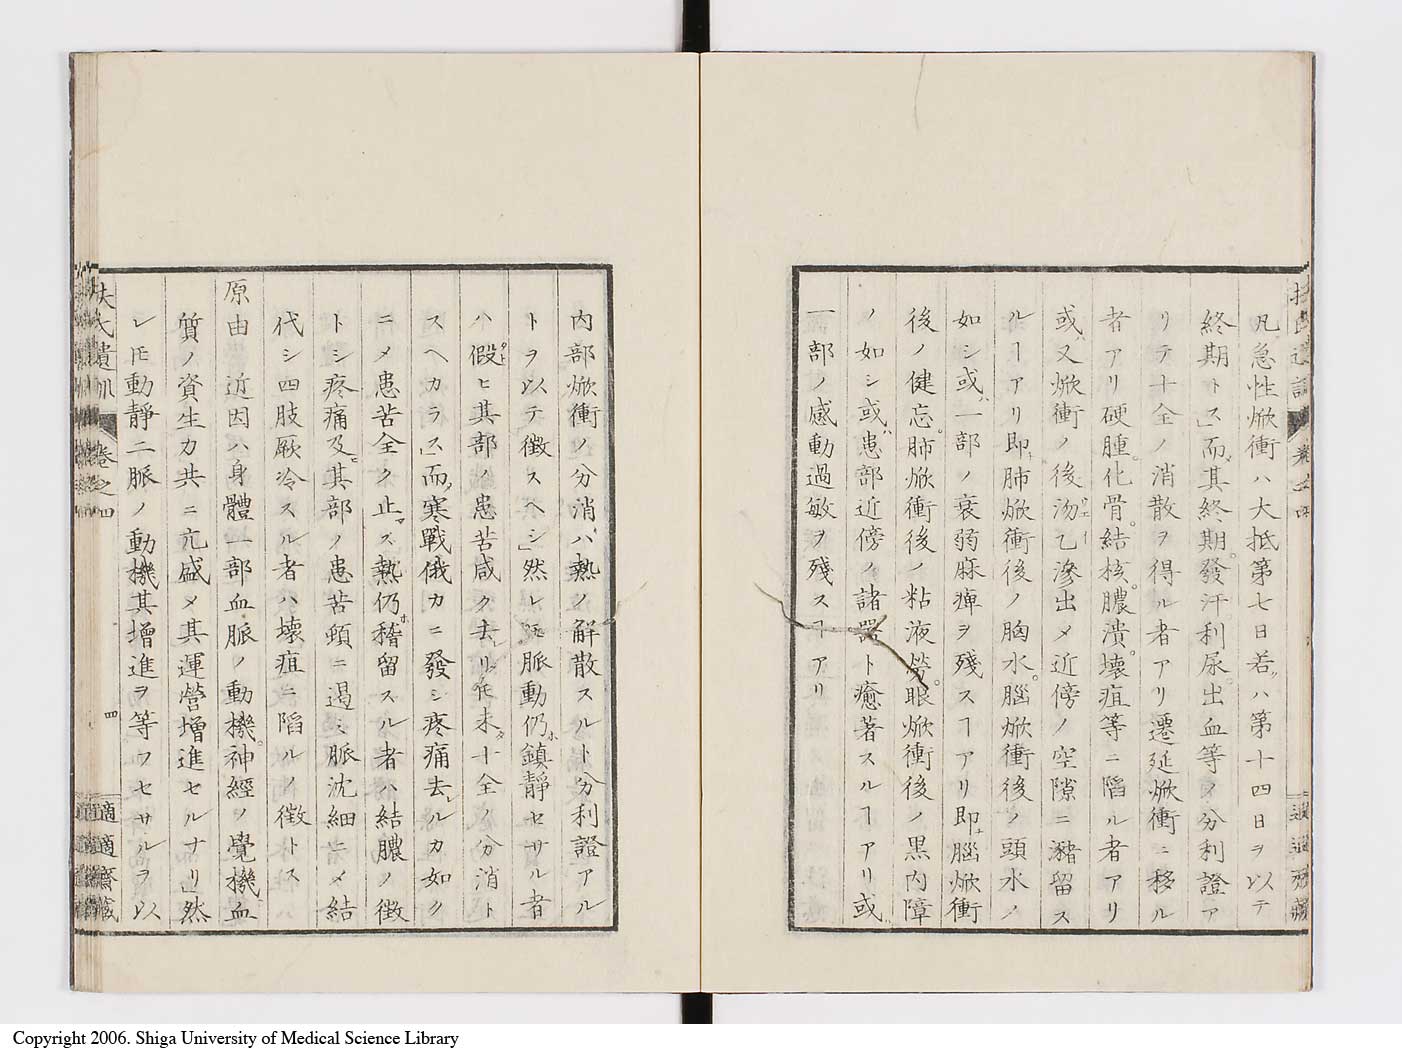 凡急性焮衝ハ大抵第七日若ハ第十四日ヲ以テ
終期トス」而其終期發汗利尿出血等ノ分利證ア
リテ十全ノ消散ヲ得ル者アリ遷延焮衝ニ移ル
者アリ硬腫化骨結核膿潰壊疽等ニ陷ル者アリ
或又焮衝ノ後沕乙滲出メ近傍ノ空隙ニ瀦留ス
ルヿアリ即肺焮衝後ノ胸水腦焮衝後ノ頭水ノ
如シ或一部ノ衰弱麻痺ヲ殘スヿアリ即腦焮衝
後ノ健忘肺焮衝後ノ粘液勞眼焮衝後ノ黒內障
ノ如シ或患部近傍ノ諸器ト癒著スルヿアリ或
一部ノ感動過敏ヲ殘スヿアリ
內部焮衝ノ分消ハ熱ノ解散スルト分利證アル
トヲ以テ徴スヘシ」然レ𪜈脈動仍鎮靜セサル者
ハ假ヒ其部ノ患苦咸ク去リ𪜈未十全ノ分消ト
スヘカラス」而寒戰俄カニ發シ疼痛去ルカ如ク
ニメ患苦全ク止ス熱仍稽留スル者ハ結膿ノ徴
トシ疼痛及其部ノ患苦頓ニ遏ミ脈沈細ニメ結
代シ四肢厥冷スル者ハ壊疽ニ陷ルノ徴トス
原由 近因ハ身體一部血脈ノ動機神經ノ覺機血
質ノ資生力共ニ亢盛メ其運營増進セルナリ」然
レ𪜈動靜二脈ノ動機其増進ヲ等フセサルヲ以
扶氏遺訓 卷之四 四 適適齋藏
Copyright 2006. Shiga University of Medical Science Library